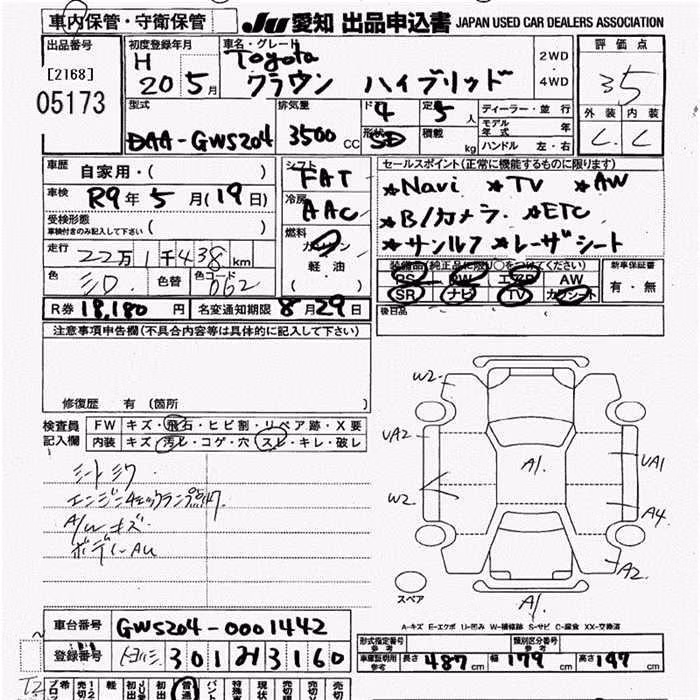 車内保管・守衛保管
JU 愛知 出品申込書 JAPAN USED CAR DEALERS ASSOCIATION
出品番号
[2168]
05173
初度登録年月
H
20 5月
車名・グレード
Toyota
クラウン ハイブリッド
2WD
・
4WD
評価点
3.5
外装 内装
C C
型式
DAA-GWS204
排気量
3500 CC
ド 4
形状 SD
定 5 人
積載 kg
ディーラー・並行
モデル年式 年
ハンドル 左・右
車歴
自家用・( )
車検
R9年 5月(19日)
受検形態
車検付きのみ記入して下さい ( )
走行
22万1千438km
色
シロ
色替
色コード
062
シフト
FAT
冷房
AAC
燃料
ガソリン
軽油
( )
セールスポイント(正常に機能するものに限ります)
★Navi ★TV ★AW
★B/カメラ. ★ETC
★サンルフ ★レーザシート
装備品(純正品に限り○をつけてください)
PS PW エアB AW
SR ナビ TV カワシート
新車保証書
有・無
後日品
R券 18,180 円
名変通知期限 8月29日
注意事項申告欄(不具合内容等は具体的に記入して下さい)
修復歴 有 (箇所
検査員記入欄
FW キズ・飛石・ヒビ割・リペア跡・X要
内装 キズ・汚レ・コゲ・穴 スレ・キレ・破レ
シートシワ
エンジンチェックランプ点灯
A/W キズ.
ボディーAU
W2
UA2
W2
A1
UA1
A4
A2
A1
スペア
A-キズ E-エクボ U-凹み W-補修跡 S-サビ C-腐食 XX-交換済
車台番号 GWS204-0001442
登録番号 301 3160
形式指定番号
類別区分番号
車庫証明用参考 長さ 487cm 幅 179cm 高さ 147cm